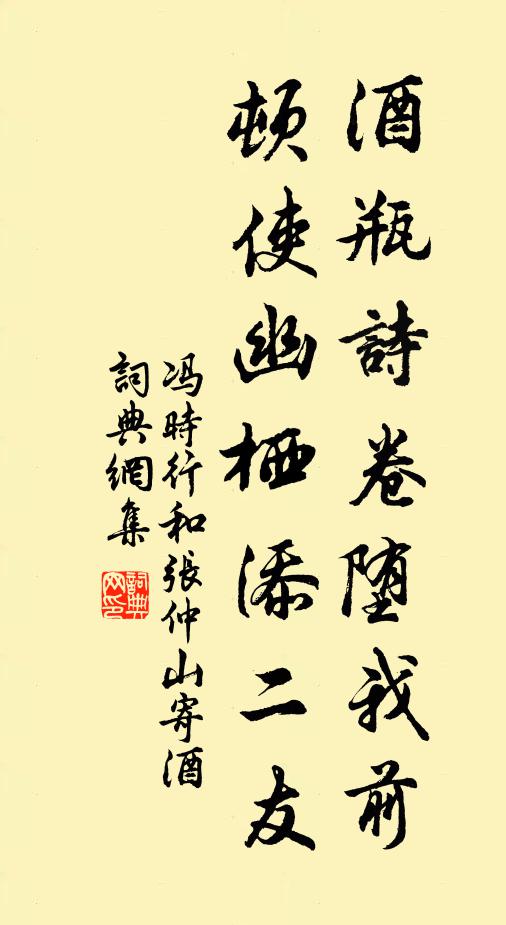 酒瓶詩卷堕我前
頓使幽栖添二友
冯時行和張仲山寄酒
詞典網集
詞典网印